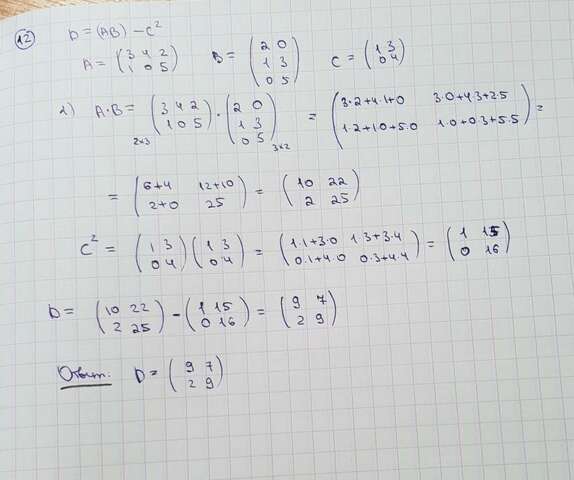 12 D = (AB) - C²
A = (3 4 2 / 1 0 5) B = (2 0 / 1 3 / 0 5) C = (1 3 / 0 4)
1) A·B = (3 4 2 / 1 0 5) 2x3 · (2 0 / 1 3 / 0 5) 3x2 = (3·2+4·1+0 3·0+4·3+2·5 / 1·2+1·0+5·0 1·0+0·3+5·5) =
= (6+4 12+10 / 2+0 25) = (10 22 / 2 25)
C² = (1 3 / 0 4) (1 3 / 0 4) = (1·1+3·0 1·3+3·4 / 0·1+4·0 0·3+4·4) = (1 15 / 0 16)
D = (10 22 / 2 25) - (1 15 / 0 16) = (9 7 / 2 9)
Ответ. D = (9 7 / 2 9)